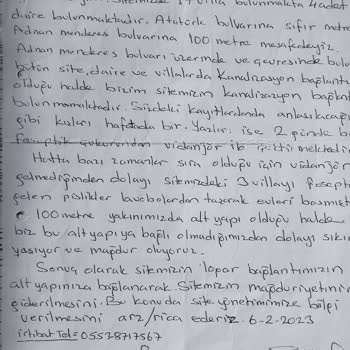 Sitemizde 17 villa bulunmakta 4 adet
daire bulunmaktadır. Atatürk bulvarına sıfır metre
Adnan menderes bulvarına 100 metre mesafedeyiz.
Adnan menderes bulvarı üzerinde ve çevresinde bulu
bütün site, daire ve villalarda Kanalizasyon bağlantı
olduğu halde bizim sitemizin kanalizasyon bağlan
bulunmamaktadır. Sizdeki kayıtlardanda anlaşılacağı
gibi kışları haftada bir. Yazları ise 2 günde bi
foseptik çukurundan vidanjör ile çektirilmektedir
Hatta bazı zamanlar sıra olduğu için vidanjör
gelmediğinden dolayı sitemizdeki 3 villayı fosept
gelen pislikler lavobolardan taşarak evleri basmışt
100 metre yakınımızda alt yapı olduğu halde
biz bu alt yapıya bağlı olmadığımızdan dolayı sıkın
yaşıyor ve mağdur oluyoruz.
Sonuç olarak sitemizin logar bağlantımızın
alt yapınıza bağlanarak. Sitemizin mağduriyetinin
giderilmesini. Bu konuda site yönetimimize bilgi
verilmesini arz/rica ederiz. 6-2-2023
irtibat Tel = 05538717567